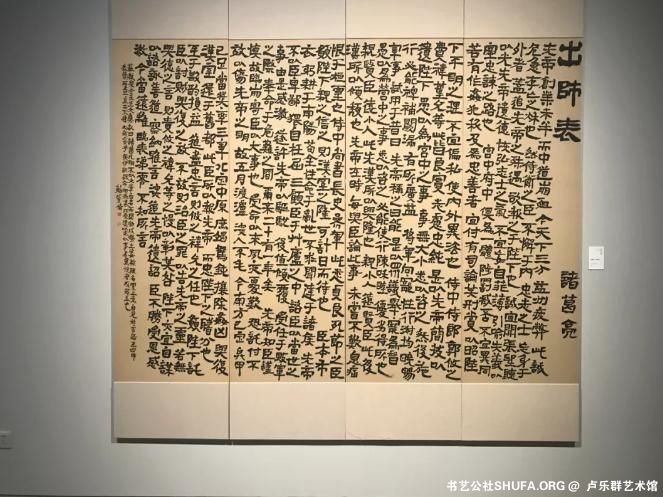 出師表
諸葛亮
先帝創業未半而中道崩殂今天下三分益州疲弊此誠
危急存亡之秋也然侍衛之臣不懈于內忠志之士忘身于
外者蓋追先帝之殊遇欲報之于陛下也誠宜開張聖聽
以光先帝遺德恢弘志士之氣不宜妄自菲薄引喻失義以
塞忠諫之路也宮中府中俱為一體陟罰臧否不宜異同
若有作姦犯科及為忠善者宜付有司論其刑賞以昭陛
下平明之理不宜偏私使內外異法也侍中侍郎郭攸之
費禕董允等此皆良實志慮忠純是以先帝簡拔以
遺陛下愚以為宮中之事事無大小悉以咨之然後施
行必能裨補闕漏有所廣益將軍向寵性行淑均曉暢
軍事試用于昔日先帝稱之曰能是以眾議舉寵為督
愚以為營中之事悉以咨之必能使行陣和睦優劣得所也
親賢臣遠小人此先漢所以興隆也親小人遠賢臣此後
漢所以傾頹也先帝在時每與臣論此事未嘗不歎息痛
恨于桓靈也侍中尚書長史參軍此悉貞良死節之臣
願陛下親之信之則漢室之隆可計日而待也臣本布
衣躬耕于南陽苟全性命于亂世不求聞達于諸侯先帝
不以臣卑鄙猥自枉屈三顧臣于草廬之中諮臣以當世之
事由是感激遂許先帝以驅馳後值傾覆受任于敗軍
之際奉命于危難之間爾來二十有一年矣先帝知臣謹
慎故臨崩寄臣以大事也受命以來夙夜憂歎恐託付不
效以傷先帝之明故五月渡瀘深入不毛今南方已定兵甲
已足當獎率三軍北定中原庶竭駑鈍攘除姦凶興復
漢室還于舊都此臣所以報先帝而忠陛下之職分也
至于斟酌損益進盡忠言則攸之禕允之任也願陛下託
臣以討賊興復之效不效則治臣之罪以告先帝之靈若無
興德之言則責攸之禕允等之慢以彰其咎陛下亦宜自謀
以諮諏善道察納雅言深追先帝遺詔臣不勝受恩感
激今當遠離臨表涕零不知所言
书艺公社SHUFA.ORG @ 卢乐群艺术馆